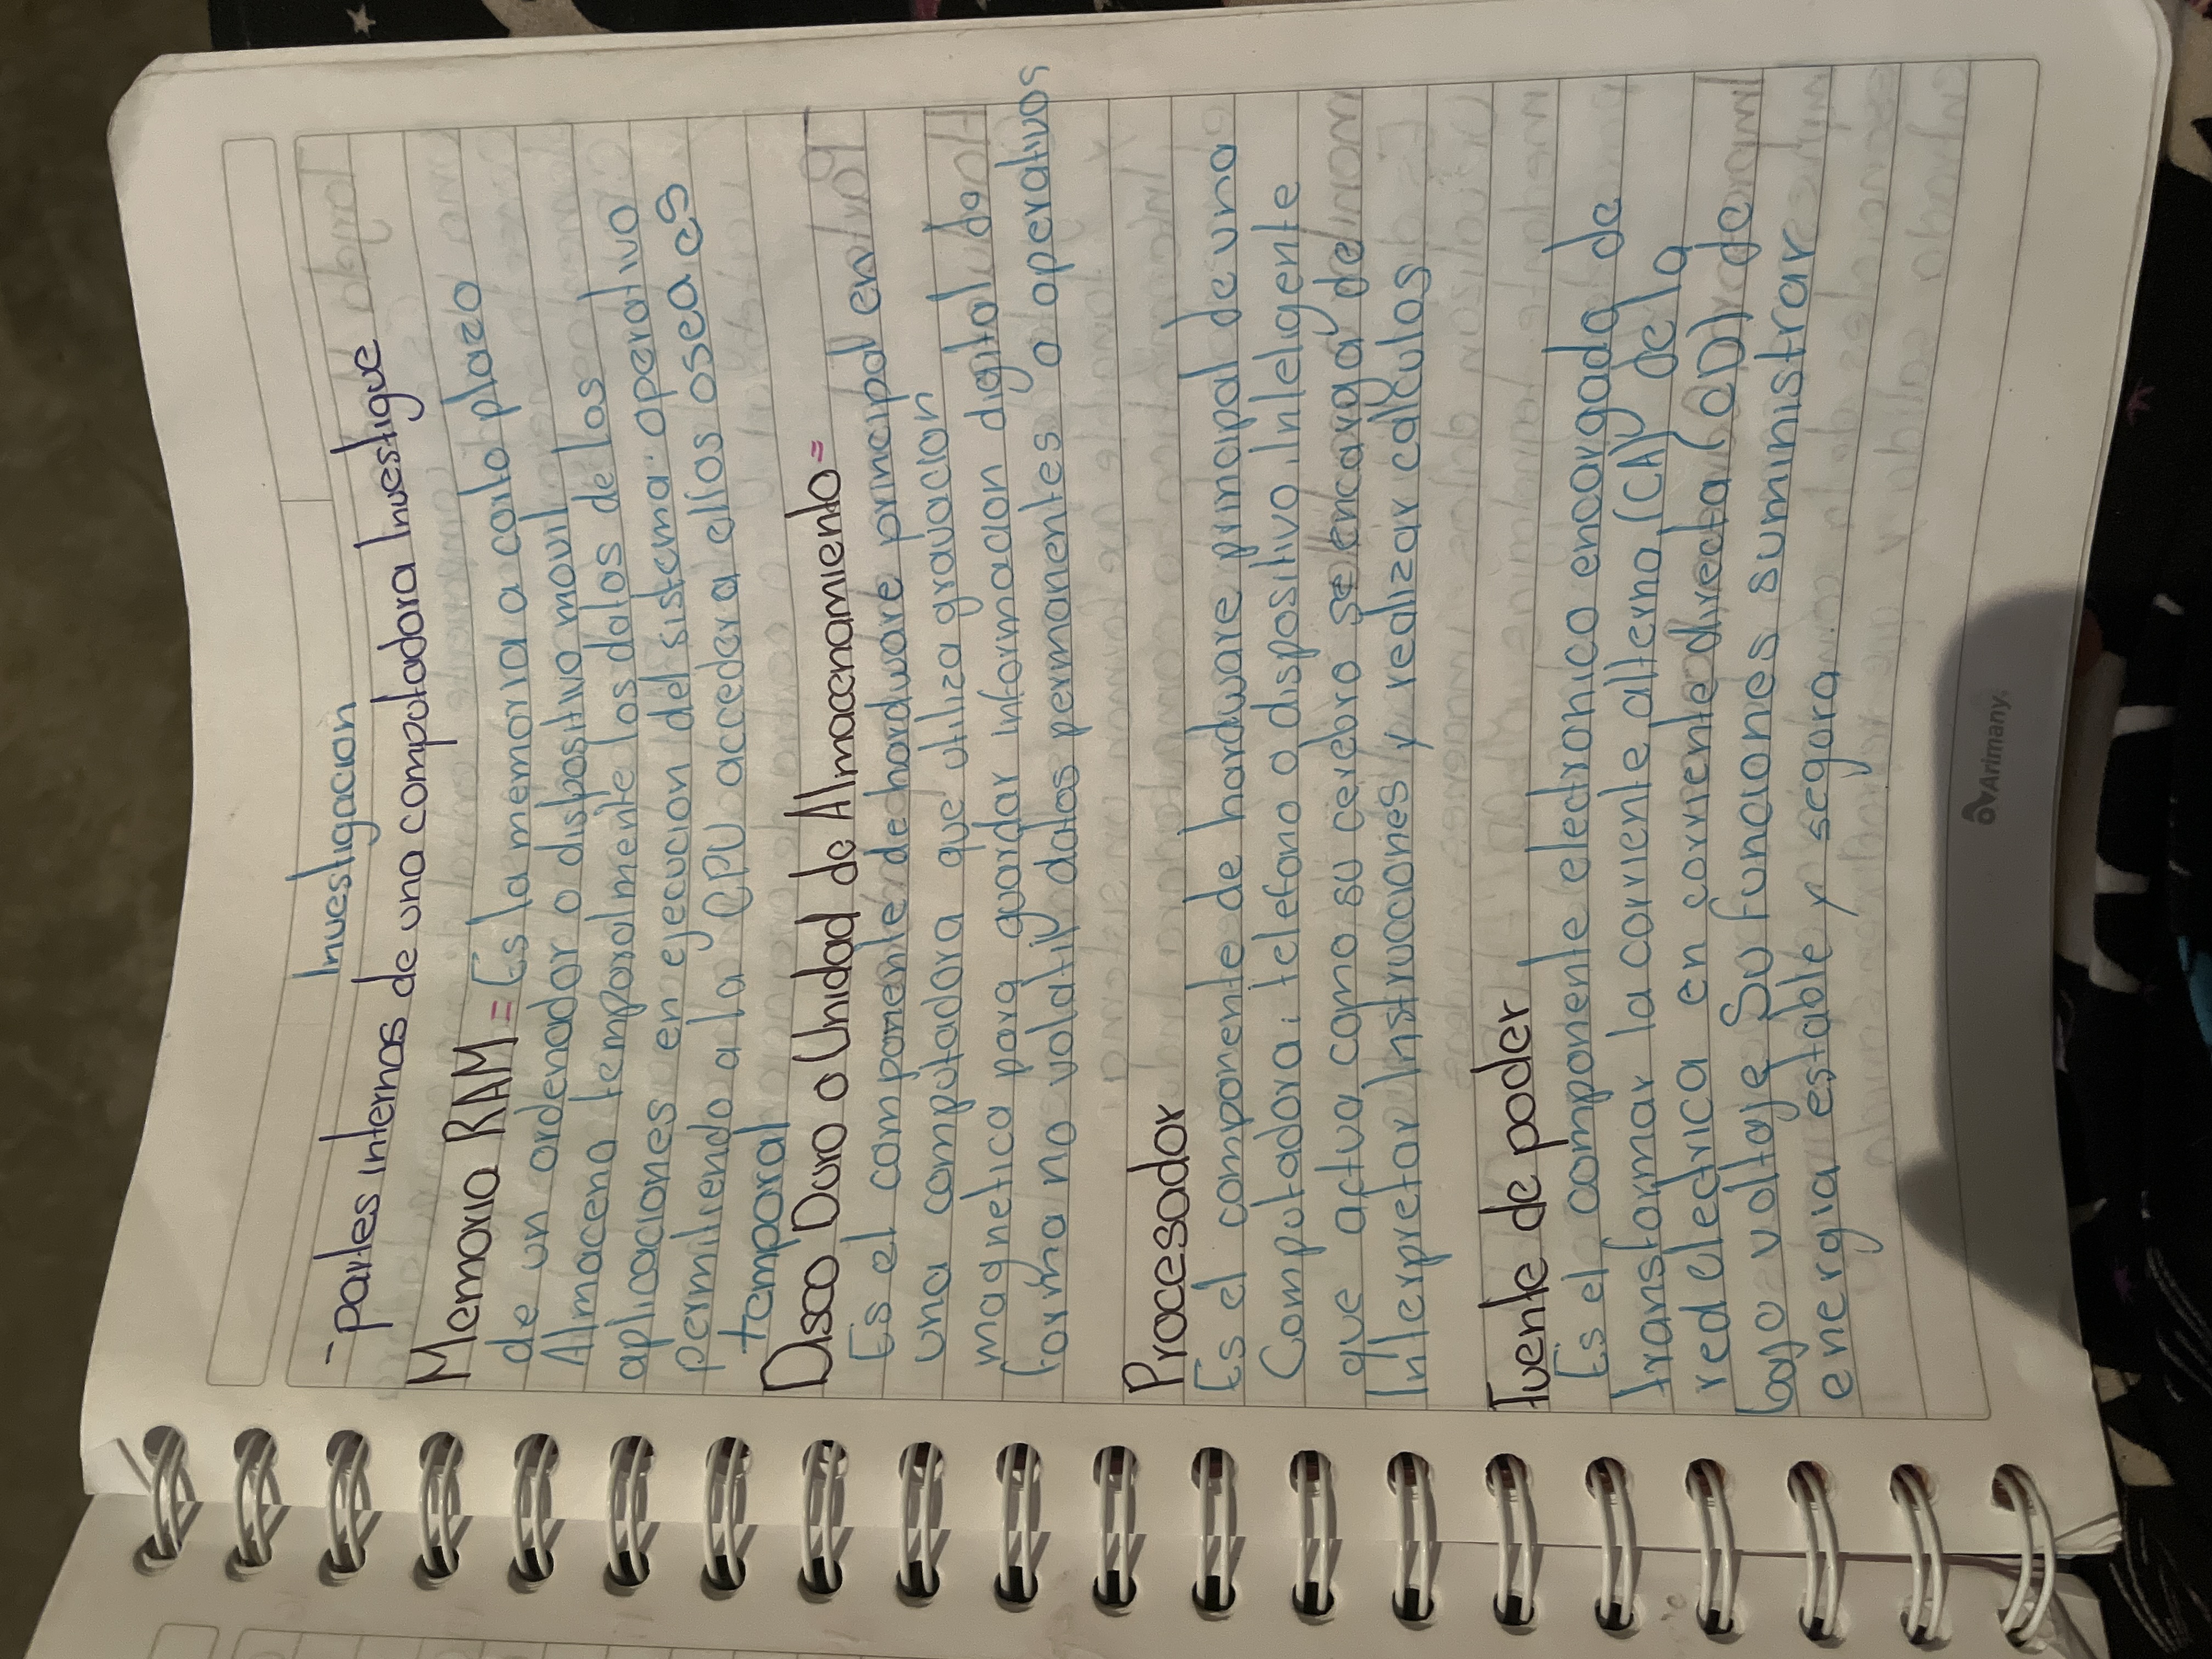 Investigacion
- partes internas de una computadora Investigue
Memoria RAM = Es la memoria a corto plazo
de un ordenador o dispositivo movil
Almacena temporalmente los datos de las
aplicaciones en ejecucion del sistema operativo
permitiendo a la CPU acceder a ellos osea es
temporal
Disco Duro o Unidad de Almacenamiento =
Es el componente de hardware principal en
una computadora que utiliza gravacion
magnetica para guardar informacion digital de
forma no volatil y datos permanentes o operativos
Procesador
Es el componente de hardware primcipal de una
Computadora: telefono o dispositivo Inteligente
que actua como su cerebro se encarga de
Interpretar Instrucciones y realizar calculos
Fuente de poder
Es el componente electronico encargado de
transformar la corriente alterna (CA) de la
red electrica en corriente directa (CD) de
bajo voltaje Su funciones suministrar
energia estable y segura
Arimany